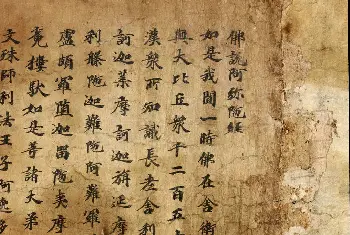 佛說阿弥陀経
如是我聞一時佛在舍衛
與大比丘衆千二百五十
漢衆所知識長老舍利
訶迦葉摩訶迦旃延摩
利槃陀迦難陀阿難羅
盧頗羅墮迦留陀夷摩
㝹樓馱如是等諸大
文殊師利法王子阿逸多